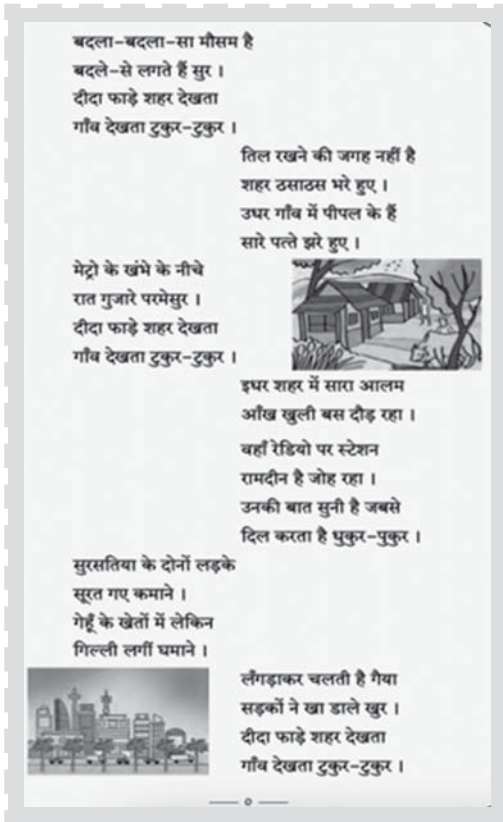 बदला-बदला-सा मौसम है
बदले-से लगते हैं सुर ।
दीदा फाड़े शहर देखता
गाँव देखता टुकुर-टुकुर ।
तिल रखने की जगह नहीं है
शहर ठसाठस भरे हुए ।
उधर गाँव में पीपल के हैं
सारे पत्ते झरे हुए ।
मेट्रो के खंभे के नीचे
रात गुजारे परमेसुर ।
दीदा फाड़े शहर देखता
गाँव देखता टुकुर-टुकुर ।
इधर शहर में सारा आलम
आँख खुली बस दौड़ रहा ।
वहाँ रेडियो पर स्टेशन
रामदीन है जोह रहा ।
उनकी बात सुनी है जबसे
दिल करता है धुकुर-पुकुर ।
सुरसतिया के दोनों लड़के
सूरत गए कमाने ।
गेहूँ के खेतों में लेकिन
गिल्ली लगीं घमाने ।
लँगड़ाकर चलती है गैया
सड़कों ने खा डाले खुर ।
दीदा फाड़े शहर देखता
गाँव देखता टुकुर-टुकुर ।